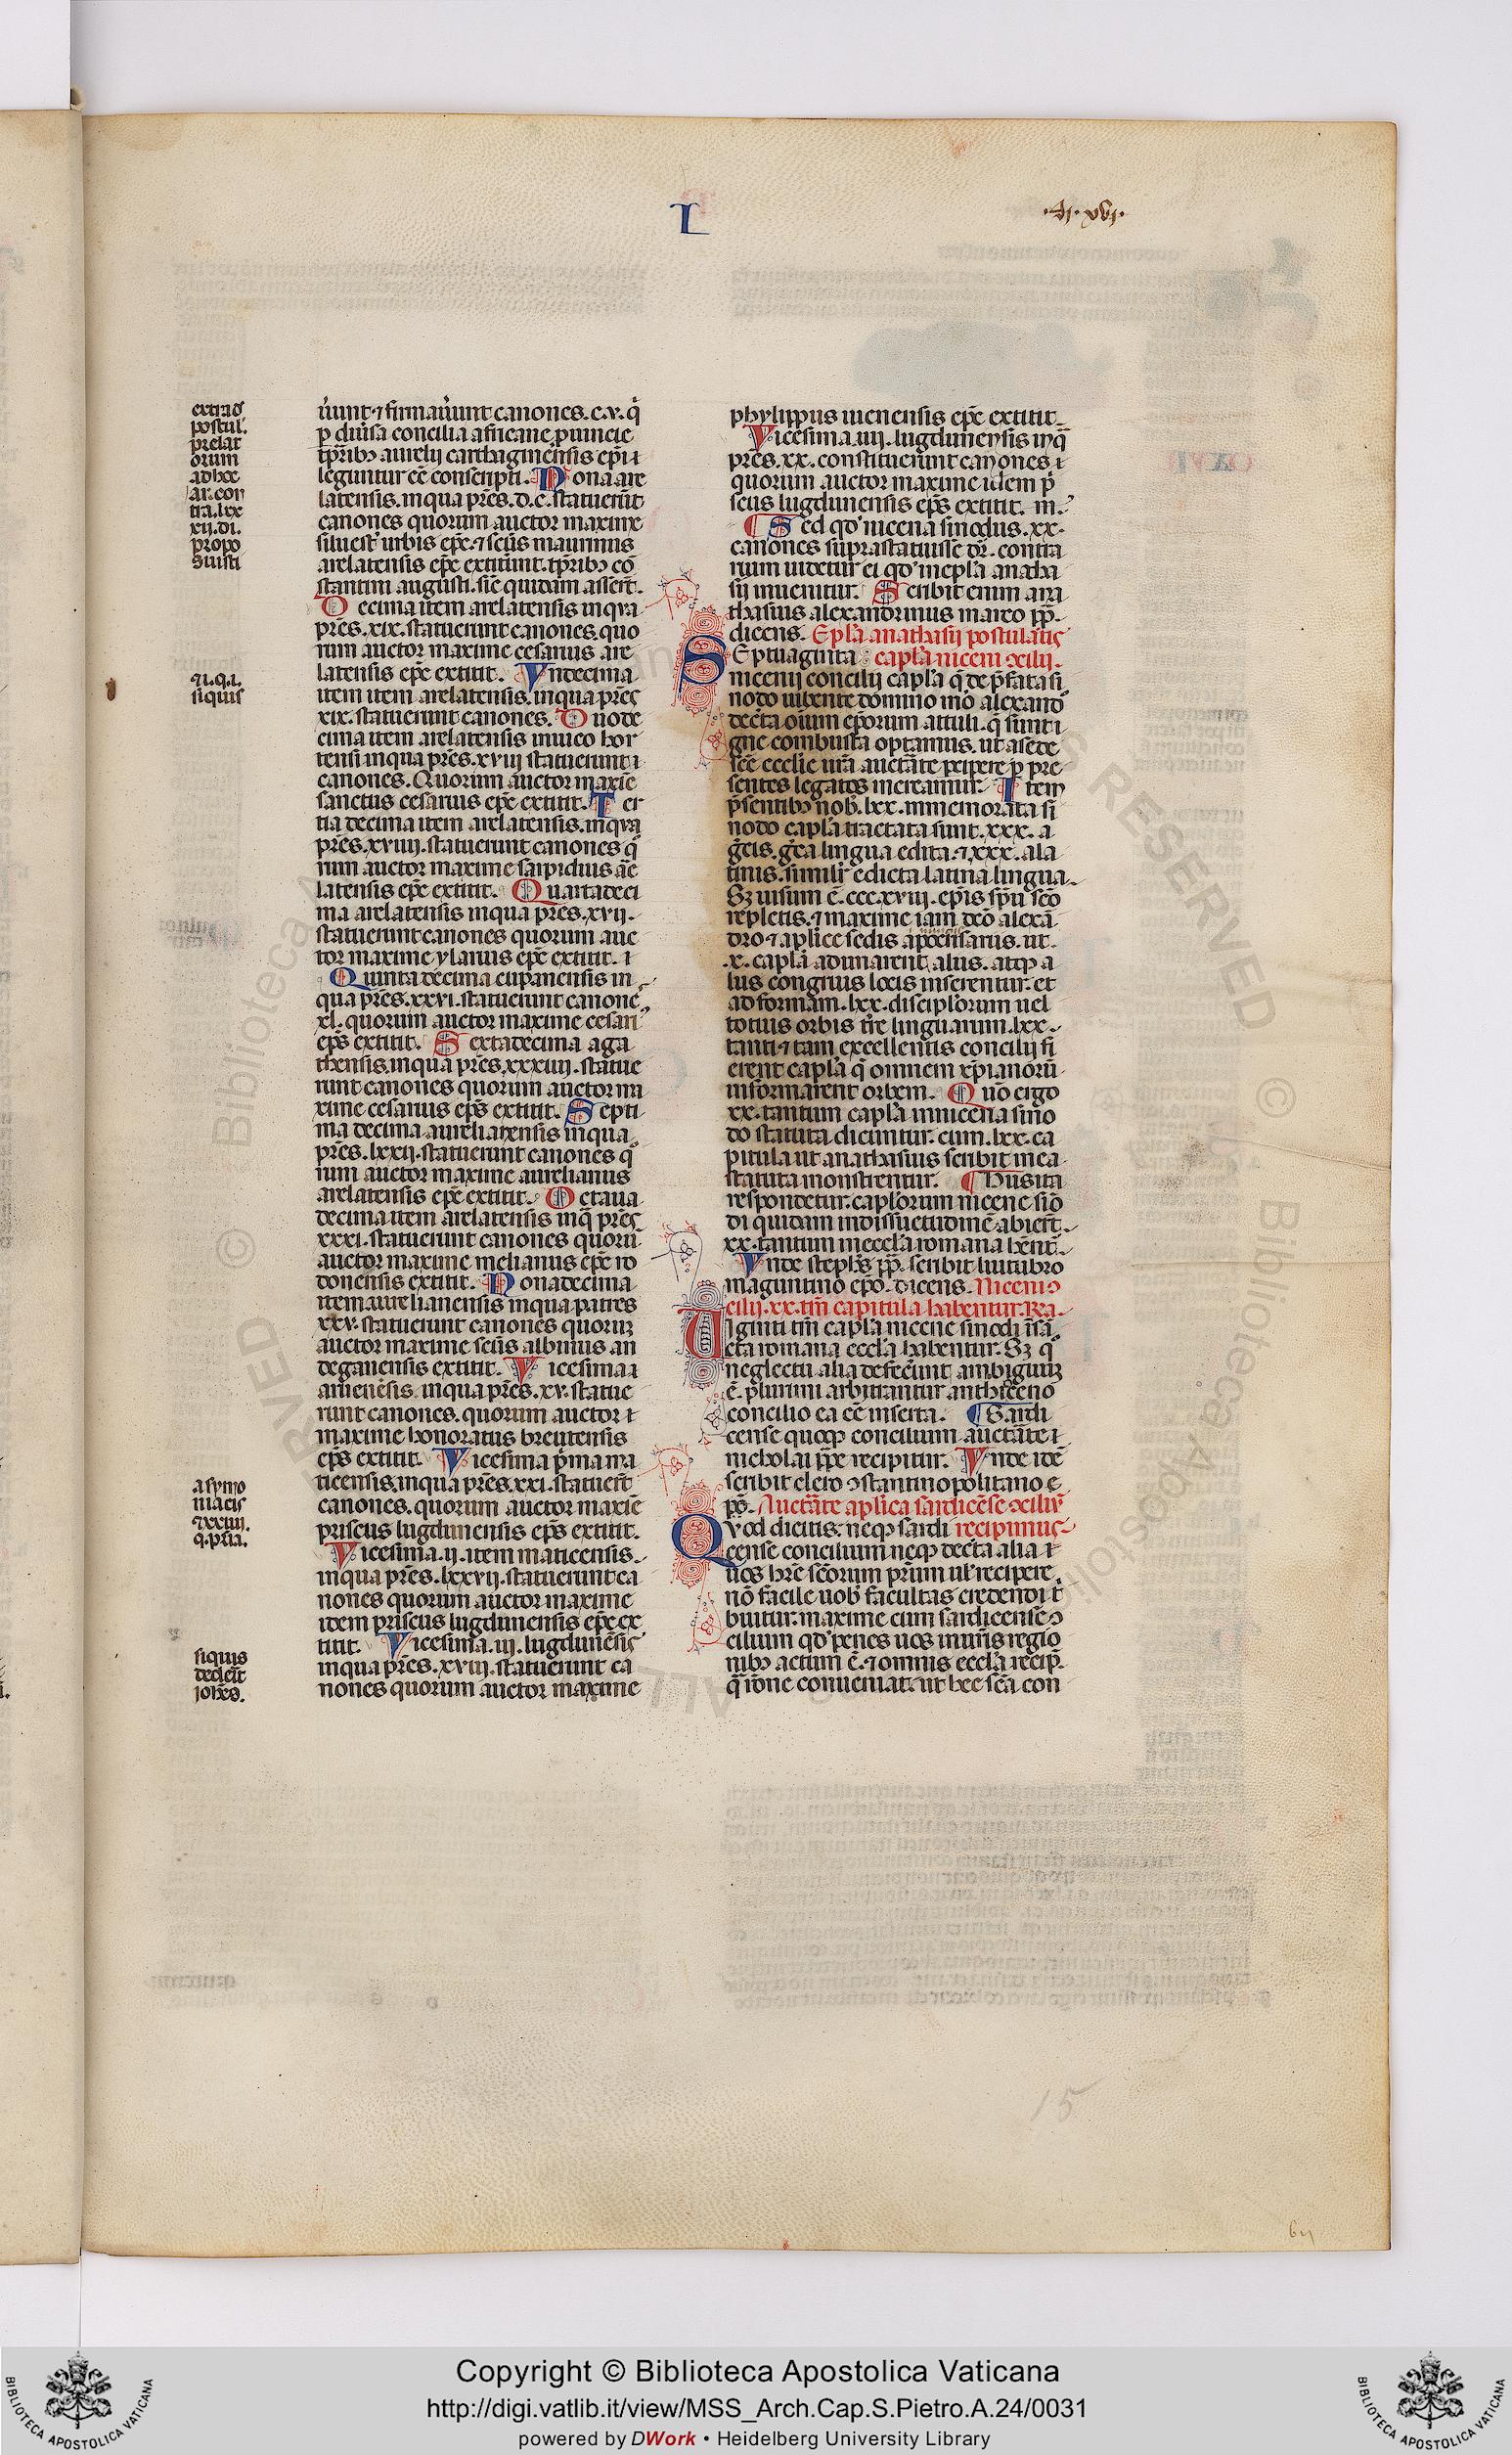 L
·di· xvi·
extra d̄
postul'.
prelat
orum
ad hec
ar. con
tra. lxx
xii. di.
propo
suisti
ꝛ i. q. i.
siquis
a symo
niacis
ꝛ xxiiii.
q. pria.
siquis
decleīc
ioīīes.
ùunt ⁊ firmaùunt canones. c.v. q̇
ꝑ diùsa concilia africane ꝓuincie
tp̄ribꝫ aurelij cartbaginensis ep̄i ⁊
leguntur eē conscripti. Nona are
latensis. in qua pr̄es. d.c. statuer̄ūt
canones quorum auctor maxime
siluest' urbis ep̄c. ⁊ sēus maurinus
arelatensis ep̄c extitùnt. tp̄ribꝫ cō
stantini augusti. sic quidam asserūt.
Decima item arelatensis in qua
pr̄es. xix. statuerunt canones. quo
rum auctor maxime cesarius are
latensis ep̄c extitit. Vndecima
item item arelatensis. in qua pr̄es
xix. statuerunt canones. Duode
cima item arelatensis inuico hor
tensi in qua pr̄es. xviii statuerunt ⁊
canones. Quorum auctor maxīe
sanctus cesarius ep̄c extitit. Ter
tia decima item arelatensis. in qua
pr̄es. xviiij. statuerunt canones q̊
rum auctor maxime sarpidius ar̄e
latensis ep̄c extitit. Quarta deci
ma arelatensis in qua pr̄es. xvij.
statuerunt canones quorum auc
tor maxime ylarius ep̄c extitit. ⁊
Quinta decima eupanensis in
qua pr̄es. xxvi. statuerunt canone
xl. quorum auctor maxime cesari
ep̄s extitit. Sexta decima aga
thensis. in qua pr̄es. xxxiiij. statue
runt canones quorum auctor ma
xime cesarius ep̄s extitit. Septi
ma decima aurelianensis in qua
pr̄es. lxxij. statuerunt canones q̊
rum auctor maxime aurelianus
arelatensis ep̄c extitit. Octaua
decima item arelatensis in q̄ pr̄es
xxxi. statuerunt canones quorū
auctor maxime melianus ep̄c ro
donensis extitit. Nona decima
item aurelianensis in qua patres
xxv. statuerunt canones quoruꝫ
auctor maxime sēus albinus an
degauensis extitit. Vicesima ⁊
aruenēsis in qua pr̄es. xv. statue
runt canones. quorum auctor ⁊
maxime honoratus breutensis
ep̄s extitit. Vicesima p̄ma ma
ticensis. in qua pr̄es. xxi. statuer̄t
canones. quorum auctor maxīe
priscus lugdunensis ep̄s extitit.
Vicesima. ij. item maticensis.
in qua pr̄es. lxxvij. statuerunt ca
nones quorum auctor maxime
idem priscus lugdunensis ep̄c ex
titit. Vicesima. iij. lugdunēsis
in qua pr̄es. xviij. statuerunt ca
nones quorum auctor maxime
phylippus uienensis ep̄c extitit
Vicesima. iiij. lugdunensis in q̄
pr̄es. xx. constituerunt canones ⁊
quorum auctor maxime idem p̄
scus lugdunensis ep̄s extitit. m.
¶ Sed qd' nicena sinodus. xx.
canones supra statuisse dr̄. contra
rium uidetur ei qd' in epl̄a anatha
sij inuenitur. Scribit enim ana
thasius alexandrinus marco pp̄.
dicens. Epl̄a anathasij postulātis
Septuaginta capl̄a niceni ↄcilij.
nicenij concilij capl̄a q̄ de p̄fata si
nodo uiuente domino mō alexand'
decta oīum ep̄orum attuli. q̄ sunt ⁊
gne combusta optamus. ut a sede
sc̄e ecclie ur̄a auctāte ꝑcipere ꝑ pre
sentes legatos mereamur. Item
p̄sentibꝫ nob'. lxx. in memorata si
nodo capl̄a tractata sunt. xxx. a
grecis. greca lingua edita. ⁊ xxx. a la
tinis. similr̄ edicta latina lingua.
Sꝫ uisum ē. ccc.xviij. ep̄is spū sc̄o
repletis. ⁊ maxime iam dc̄o alexā
dro ⁊ aplice sedis apocrisarijs. ut
.x. capl̄a adunarent alijs. atqꝫ a
lijs congruis locis insererentur. et
ad formam. lxx. discipl'orum uel
totius orbis tr̄e linguarum. lxx.
tanti ⁊ tam excellentis concilij fi
erent capl̄a q̄ omnem xp̄ianorū
informarent orbem. Quō ergo
xx. tantum capl̄a in nicena sino
do statuta dicuntur. cum. lxx. ca
pitula ut anathasius scribit in ea
statuta monstrentur. ¶ Hus ita
respondetur. capl'orum nicene sino
di quidam in dissuetudinē abierūt.
xx. tantum in eccl'a romana hēnt̄.
Vnde steph's pp̄. scribit luitubro
maguntino ep̄o. dicens. Niceni ↄ
cilij. xx. tm̄ capitula habentur. Ra.
Viginti tm̄ capl̄a nicene sinodi ī sā
cta romana eccl'a habentur. Sꝫ q̊
neglectu alia defecerint ambiguuꝫ
ē. plurimi arbitrantur anthioceno
concilio ea eē inserta. ¶ Sardi
cense quoqꝫ concilium auctāte ⁊
nicholai pp̄e recipitur. Vnde idē
scribit clero ↄstantinopolitano ⁊
pp̄. Auctāte aplica sardicēse ↄciliū
Quod dicitis. neqꝫ sardi recipimus
cense concilium neqꝫ decta alia ⁊
uos hr̄e sc̄orum prum ul' recipere.
nō facile uob' facultas credendi t̄
buitur. maxime cum sardicense ↄ
cilium qd' penes uos in ur̄is regio
nibꝫ actum ē. ⁊ omnis eccl'a recip̄.
q̄ rōne conueniat. ut hec sc̄a con
15
Copyright © Biblioteca Apostolica Vaticana
http://digi.vatlib.it/view/MSS_Arch.Cap.S.Pietro.A.24/0031
powered by DWork • Heidelberg University Library
BIBLIOTECA APOSTOLICA VATICANA
BIBLIOTECA APOSTOLICA VATICANA